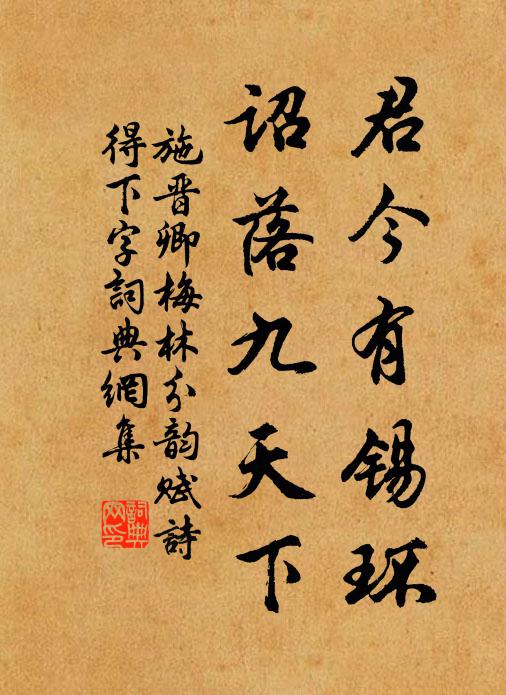 君今有锡环
诏落九天下
施晋卿梅林分韵赋詩
得下字詞典網集
詞典网印